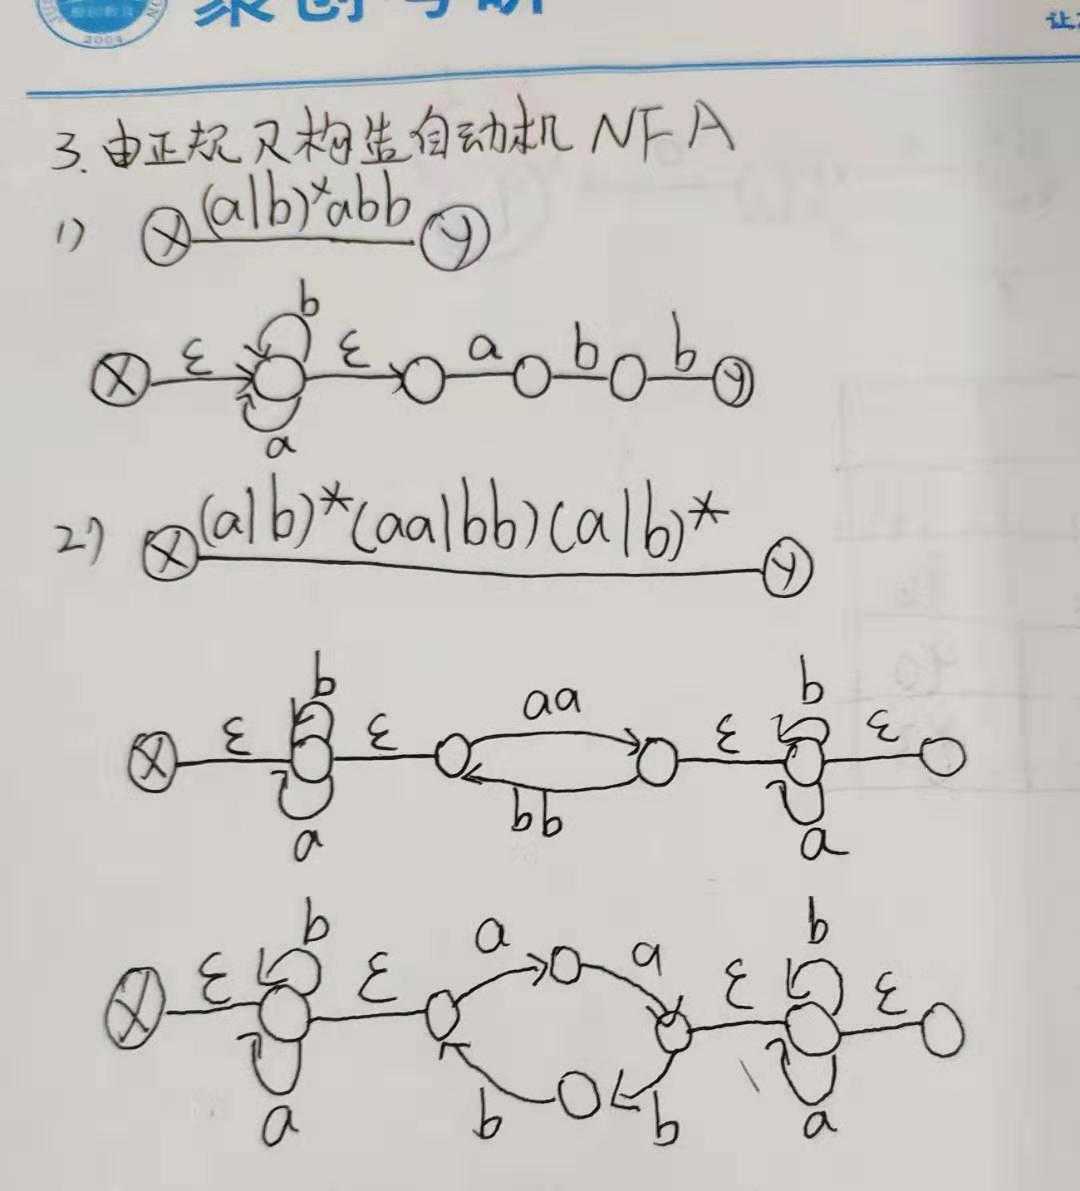 2004
让
3. 由正规式构造自动机 NFA
1) X (a|b)*abb y
b
X ε ε a b b y
a
2) X (a|b)*(aa|bb)(a|b)* y
b aa b
X ε ε ε ε
a bb a
b a a b
X ε ε ε ε
a b b a